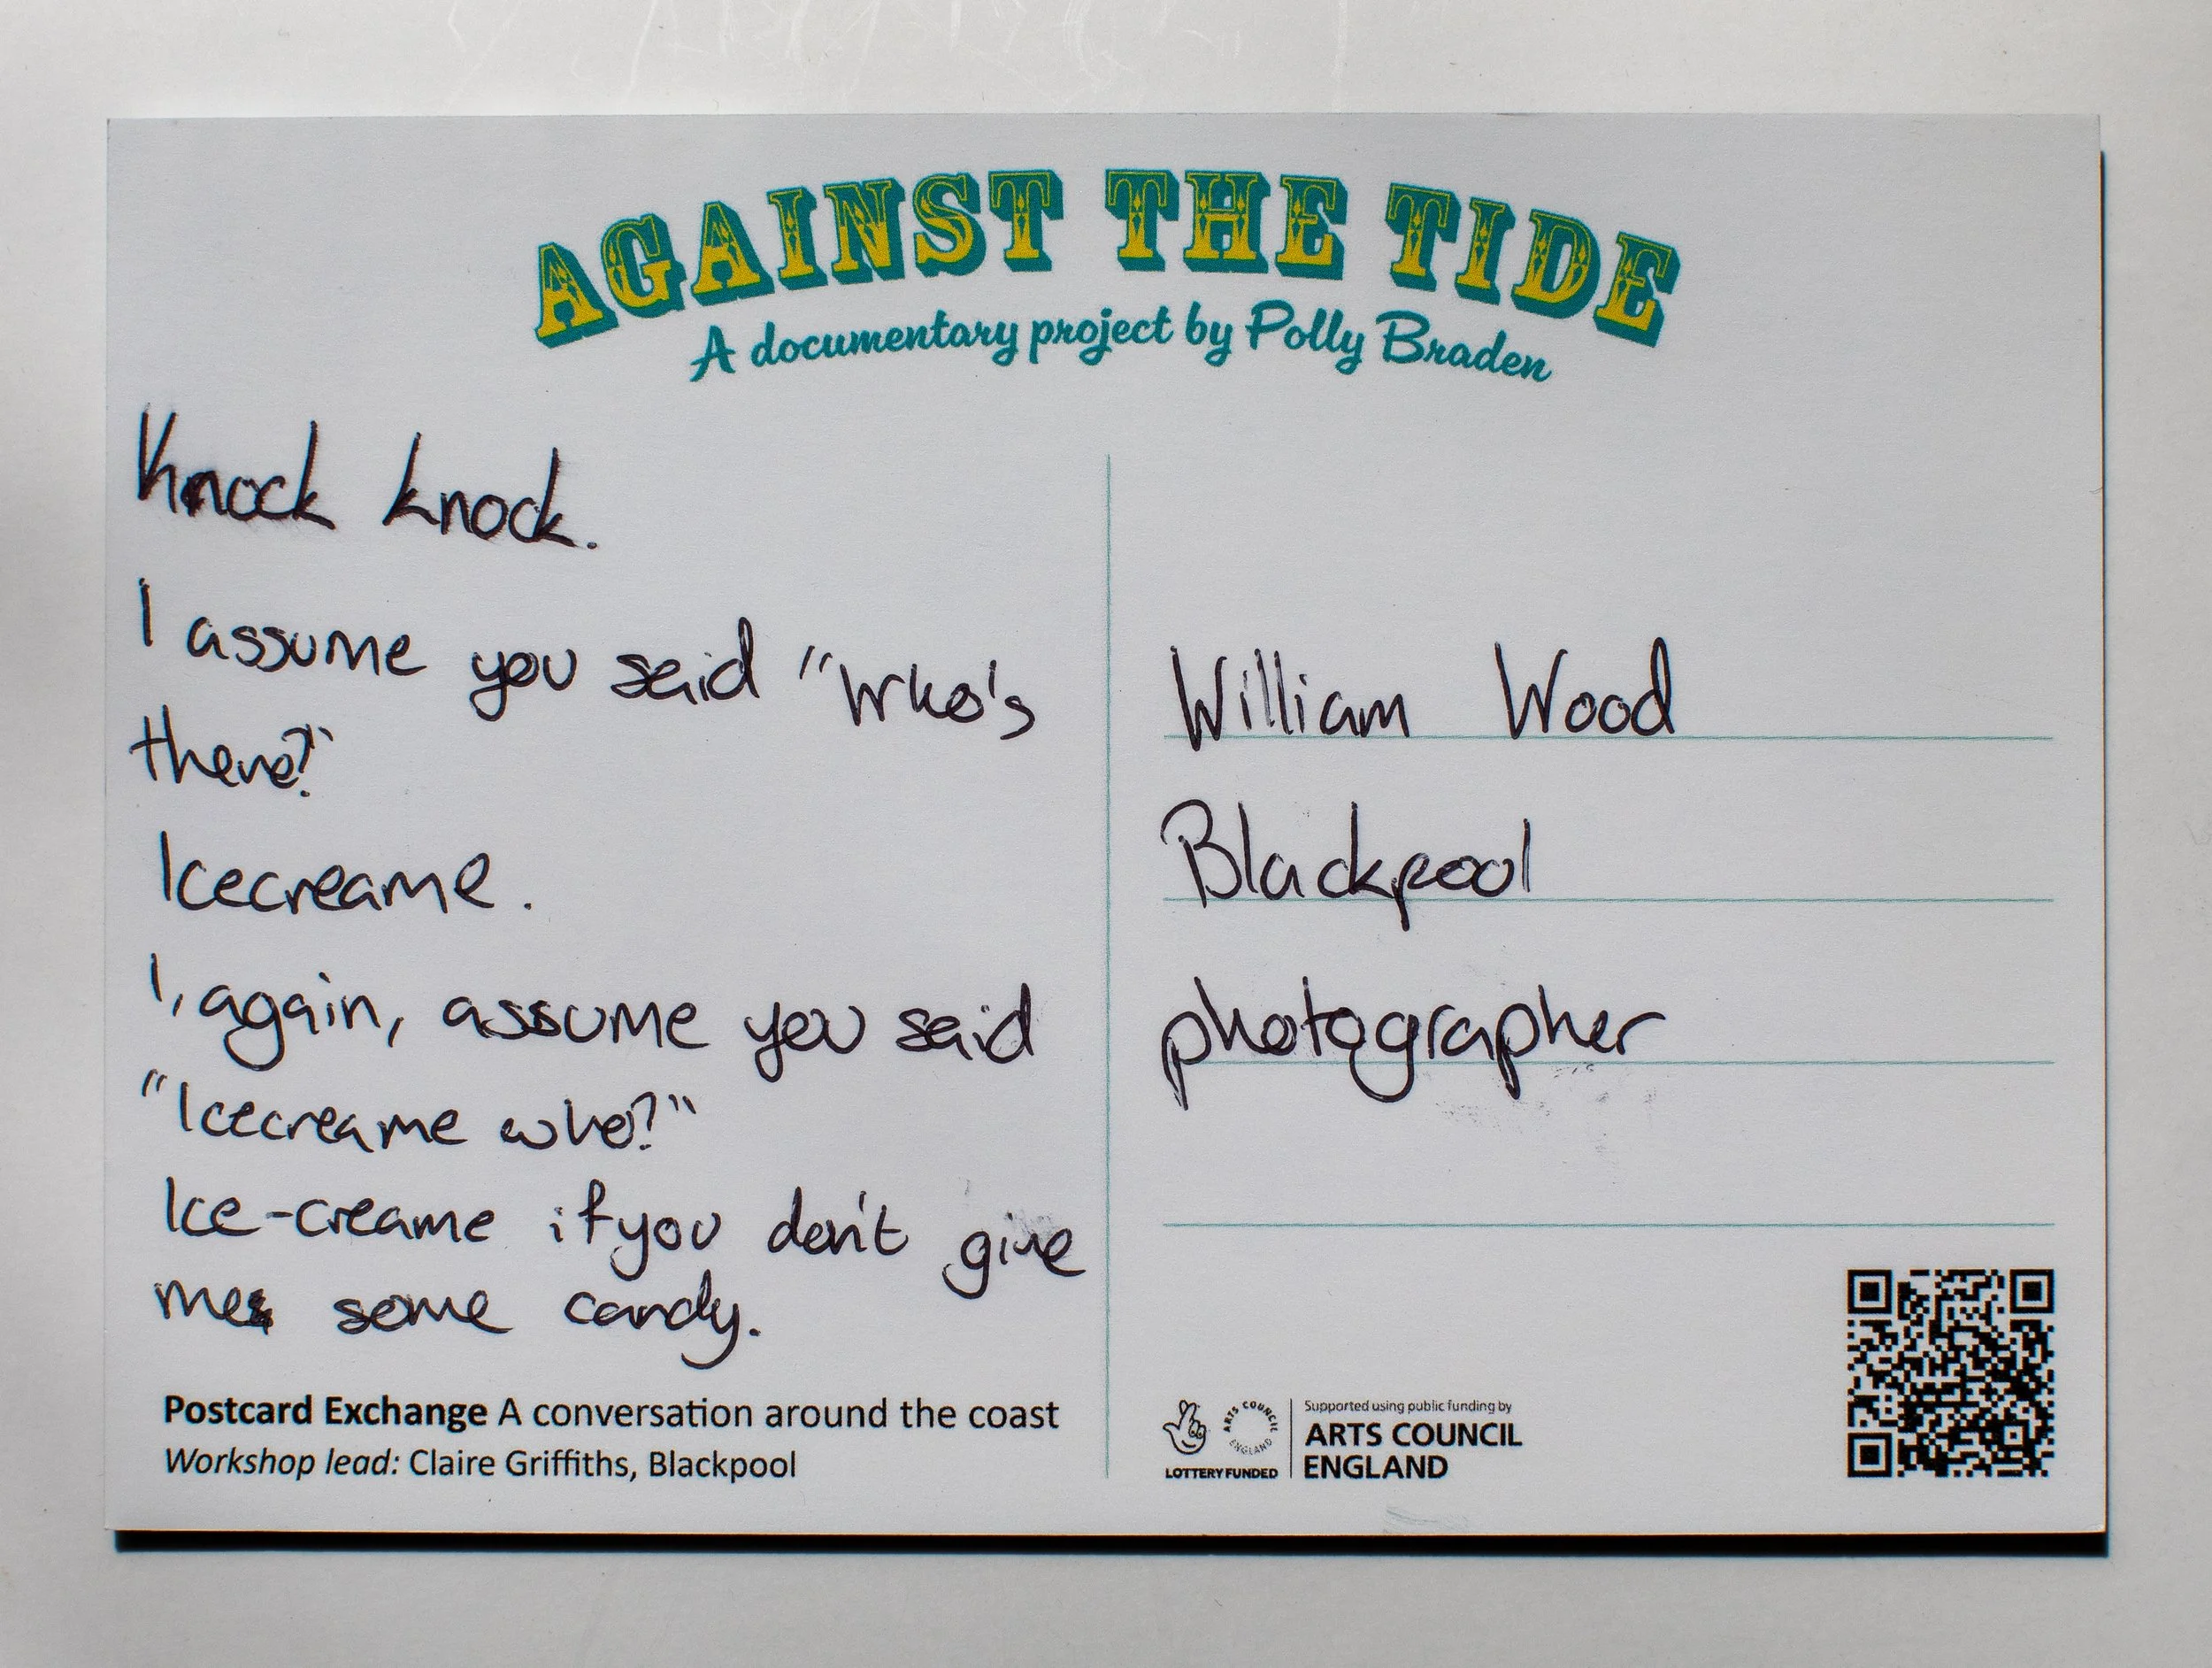 AGAINST THE TIDE
A documentary project by Polly Braden
Knock knock.
I assume you said "Who's
there?"
Icecreame.
I, again, assume you said
"Icecreame who?"
Ice-creame if you don't give
me some candy.
Postcard Exchange A conversation around the coast
Workshop lead: Claire Griffiths, Blackpool
William Wood
Blackpool
photographer
ARTS COUNCIL ENGLAND
LOTTERY FUNDED
Supported using public funding by
ARTS COUNCIL
ENGLAND